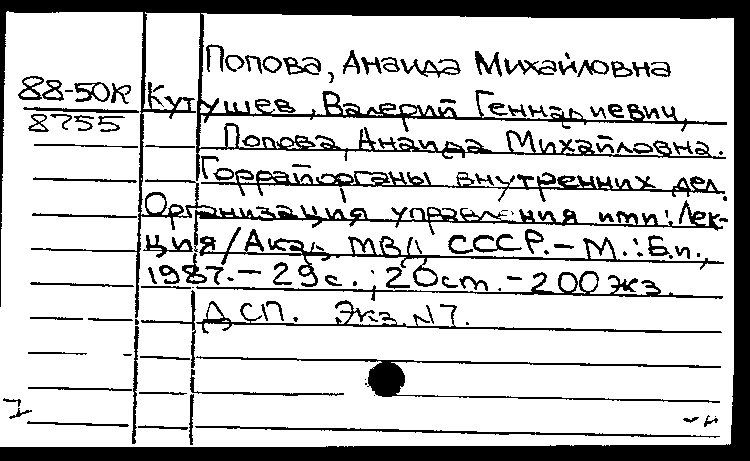 Попова, Анаида Михайловна
88-50К
8755
Кутушев, Валерий Геннадиевич,
Попова, Анаида Михайловна.
Горрайорганы внутренних дел.
Организация управления ими: Лек-
ция / Акад. МВД СССР. – М.: Б.и.,
1987. – 29 с.; 20 см. – 200 экз.
ДСП. Экз. N 7.